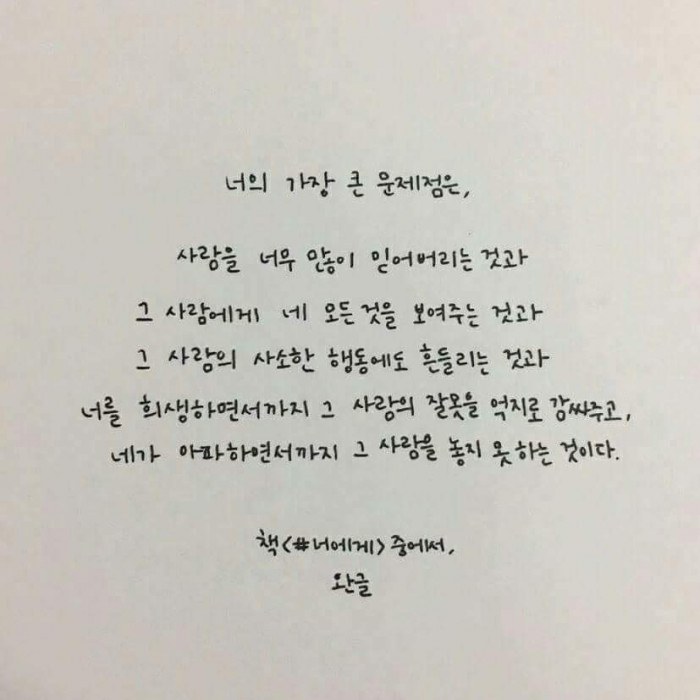 너의 가장 큰 문제점은,
사람을 너무 많이 믿어버리는 것과
그 사람에게 네 모든것을 보여주는 것과
그 사람의 사소한 행동에도 흔들리는 것과
너를 희생하면서까지 그 사람의 잘못을 억지로 감싸주고,
네가 아파하면서까지 그 사람을 놓지 못 하는 것이다.
책<#너에게> 중에서,
완글